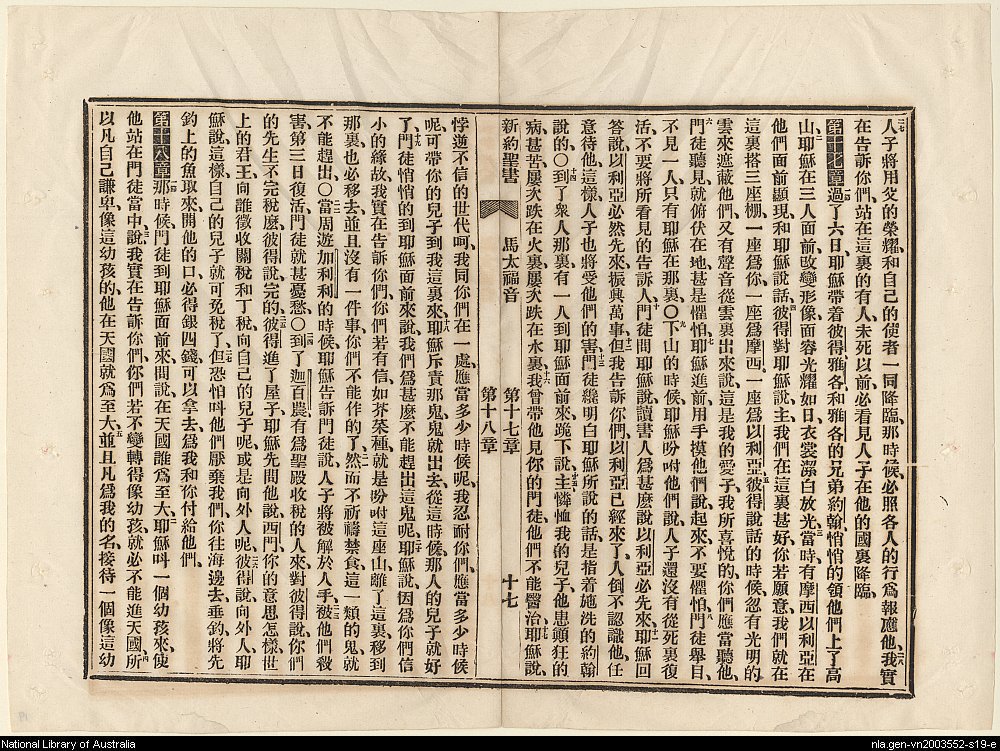 人子將用父的榮耀和自己的使者一同降臨、那時候、必照各人的行爲報應他、二八我實
在告訴你們、站在這裏的有人、未死以前、必看見人子在他的國裏降臨、
第十七章一過了六日、耶穌帶着彼得雅各和雅各的兄弟約翰、悄悄的領他們上了高
山、二耶穌在三人面前改變形像、面容光耀如日、衣裳潔白放光、三當時有摩西以利亞在
他們面前顯現、和耶穌說話、四彼得對耶穌說、主、我們在這裏甚好、你若願意、我們就在
這裏搭三座棚、一座爲你、一座爲摩西、一座爲以利亞、五彼得說話的時候、忽有光明的
雲來遮蔽他們、又有聲音從雲裏出來說、這是我的愛子、我所喜悅的、你們應當聽他、
六門徒聽見、就俯伏在地、甚是懼怕、七耶穌進前、用手摸他們說、起來、不要懼怕、八門徒舉目、
不見一人、只有耶穌在那裏、〇九下山的時候、耶穌吩咐他們說、人子還沒有從死裏復
活、不要將所看見的告訴人、十門徒問耶穌說、讀書人爲甚麽說以利亞必先來、十一耶穌回
答說、以利亞必然先來、振興萬事、十二但我告訴你們、以利亞已經來了、人倒不認識他、任
意待他、這樣、人子也將受他們的害、十三門徒纔明白耶穌所說的話、是指着施洗的約翰
說的、〇十四到了衆人那裏、有一人到耶穌面前來、跪下說、十五主、憐恤我的兒子、他患顚狂的
病甚苦、屢次跌在火裏、屢次跌在水裏、十六我曾帶他見你的門徒、他們不能醫治、十七耶穌說、
新約聖書 馬太福音 第十七章 第十八章 十七
悖逆不信的世代呵、我同你們在一處、應當多少時候呢、我忍耐你們、應當多少時候
呢、可帶你的兒子到我這裏來、十八耶穌斥責那鬼、鬼就出去、從這時候、那人的兒子就好
了、十九門徒悄悄的到耶穌面前來說、我們爲甚麽不能趕出這鬼呢、二十耶穌說、因爲你們信
小的緣故、我實在告訴你們、你們若有信、如芥菜種、就是吩咐這座山離了這裏、移到
那裏、也必移去、並且沒有一件事你們不能作的了、二一然而不祈禱禁食、這一類的鬼就
不能趕出、〇二二當周遊加利利的時候、耶穌告訴門徒說、人子將被解於人手、二三被他們殺
害、第三日復活、門徒就甚憂愁、〇二四到了迦百農、有爲聖殿收稅的人來對彼得說、你們
的先生不完稅麽、彼得說、完的、二五彼得進了屋子、耶穌先問他說、西門、你的意思怎樣、世
上的君王、向誰徵收關稅和丁稅、向自己的兒子呢、或是向外人呢、二六彼得說、向外人、耶
穌說、這樣、自己的兒子就可免稅了、二七但恐怕呌他們厭棄我們、你往海邊去垂釣、將先
釣上的魚取來、開他的口、必得銀四錢、可以拿去爲我和你付給他們、
第十八章一那時候、門徒到耶穌面前來問說、在天國誰爲至大、二耶穌呌一個幼孩來、使
他站在門徒當中說、三我實在告訴你們、你們若不變轉得像幼孩、就必不能進天國、四所
以凡自己謙卑、像這幼孩的、他在天國就爲至大、五並且凡爲我的名、接待一個像這幼
National Library of Australia
nla.gen-vn2003552-s19-e